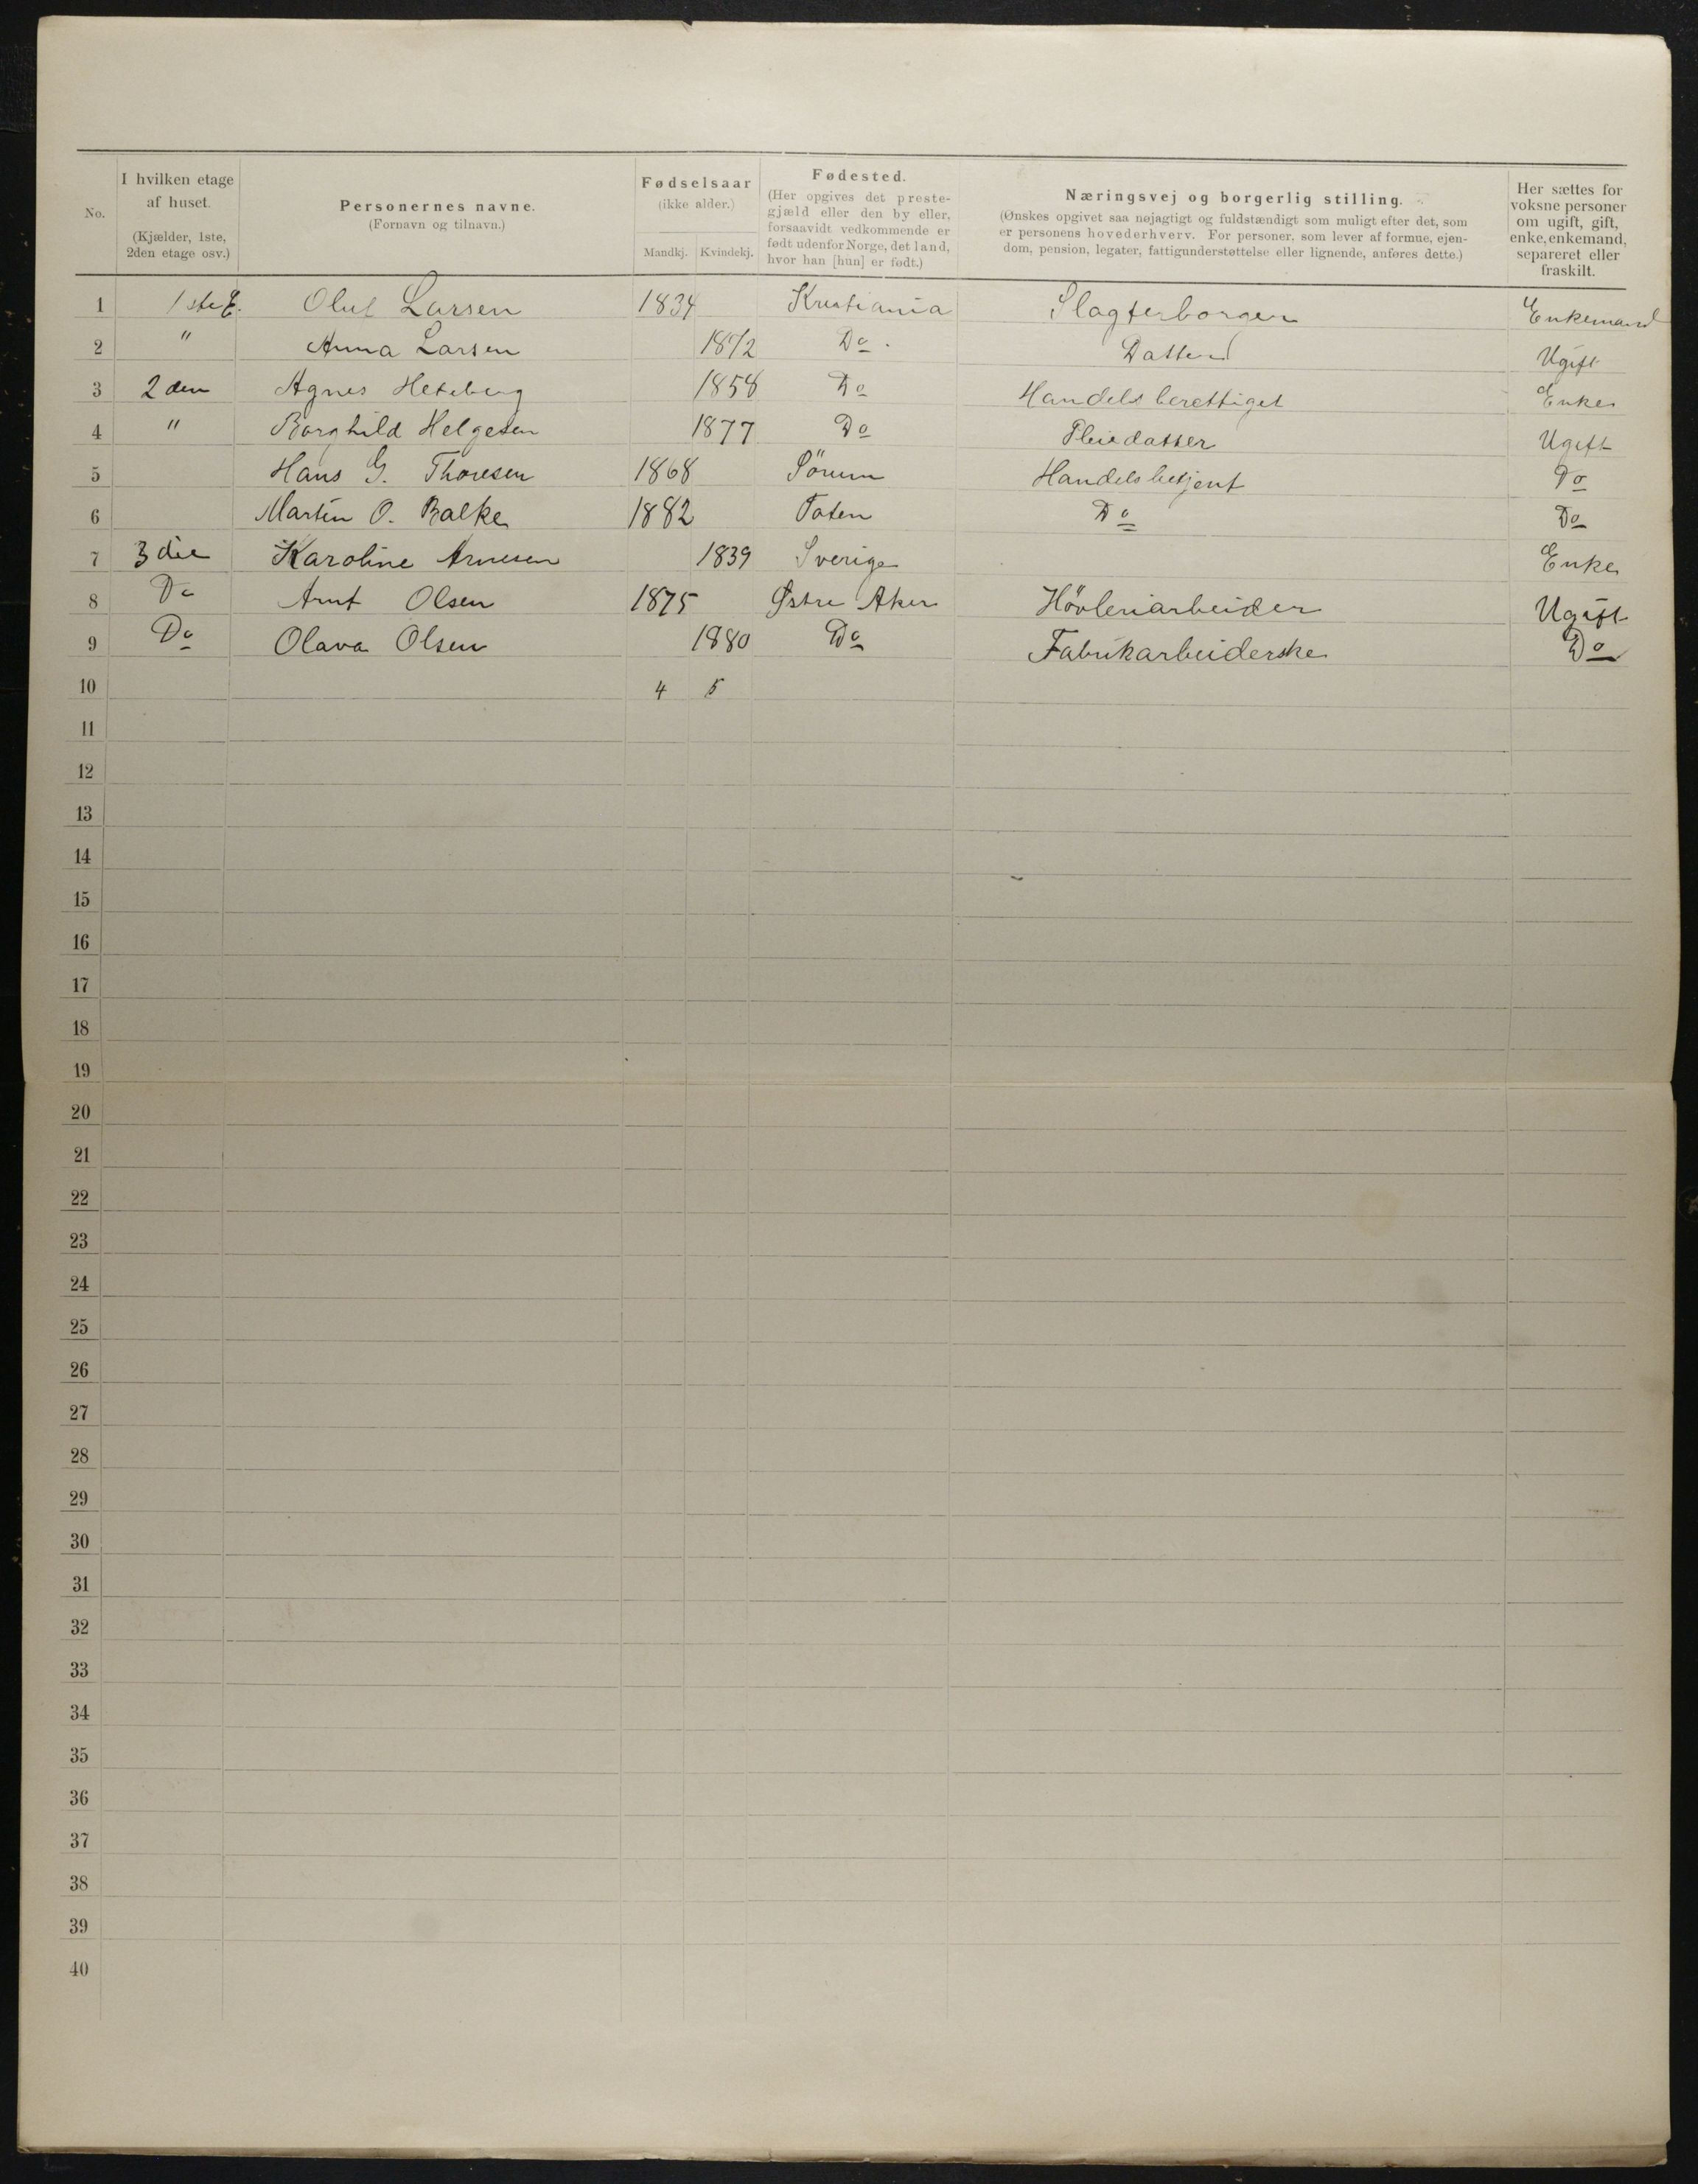 No. | I hvilken etage af huset. (Kjælder, 1ste, 2den etage osv.) | Personernes navne. (Fornavn og tilnavn.) | Fødselsaar (ikke alder.) Mandkj. | Kvindekj. | Fødested. (Her opgives det prestegjæld eller den by eller, forsaavidt vedkommende er født udenfor Norge, det land, hvor han [hun] er født.) | Næringsvej og borgerlig stilling. (Ønskes opgivet saa nøjagtigt og fuldstændigt som muligt efter det, som er personens hovederhverv. For personer, som lever af formue, ejendom, pension, legater, fattigunderstøttelse eller lignende, anføres dette.) | Her sættes for voksne personer om ugift, gift, enke, enkemand, separeret eller fraskilt.
1 1ste E. Oluf Larsen 1834 Kristiania Slagterborger Enkemand
2 " Anna Larsen 1872 Do. Datter Ugift
3 2den Agnes 1858 Do Handelsberettiget Enke
4 " Borghild Helgesen 1877 Do Pleiedatter Ugift
5 Hans G. Thoresen 1868 Sörum Handelsbetjent Do
6 Martin O. Balke 1882 Toten Do Do
7 3die Karoline Arnesen 1839 Sverige Enke
8 Do Arnt Olsen 1875 Østre Aker Hövleriarbeider Ugift
9 Do Olava Olsen 1880 Do Fabrikarbeiderske Do
10 4 5
11
12
13
14
15
16
17
18
19
20
21
22
23
24
25
26
27
28
29
30
31
32
33
34
35
36
37
38
39
40